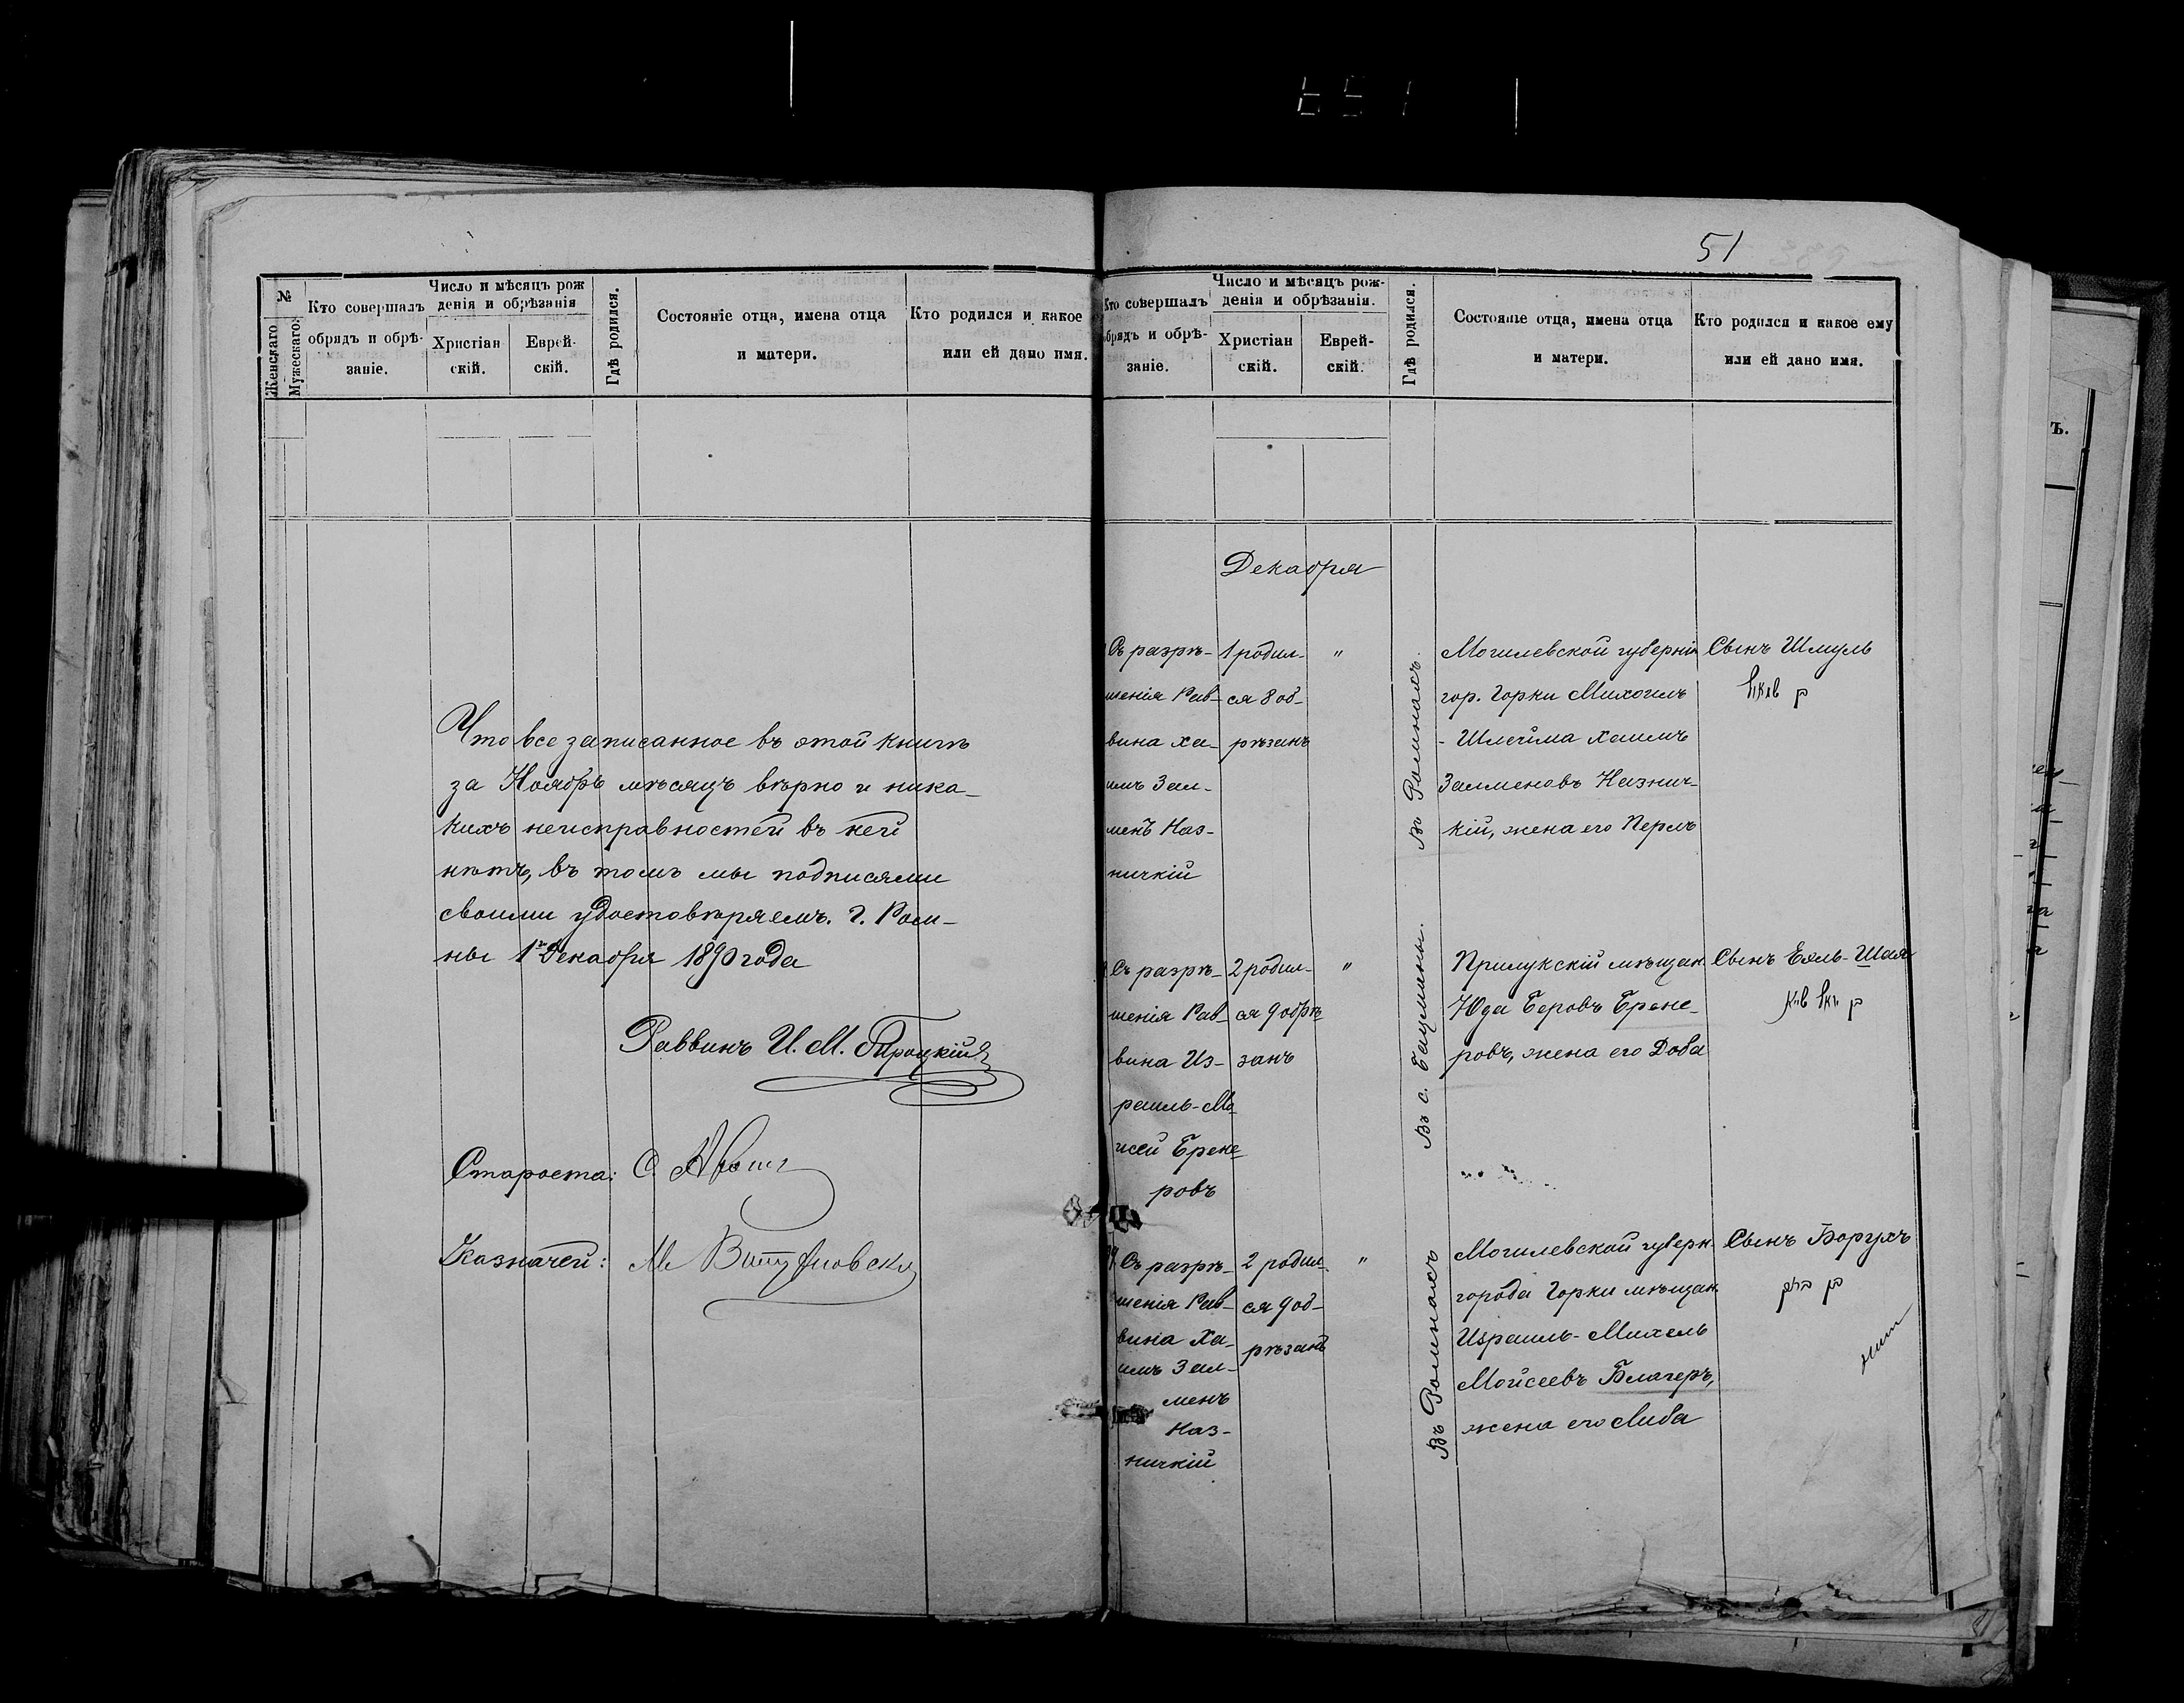 51
№
Женскаго
Мужескаго.
Кто совершалъ
обрядъ и обрѣ-
заніе.
Число и мѣсяцъ рож
денія и обрѣзанія
Христіан
скій.
Еврей-
скій.
Гдѣ родился.
Состояніе отца, имена отца
и матери.
Кто родился и какое
или ей дано имя.
Что все записанное въ этой книгѣ
за Ноябрь мѣсяцъ вѣрно и ника-
кихъ неисправностей въ ней
нѣтъ, въ томъ мы подписями
своими удостовѣряемъ. Г. Ром-
ны 1го Декабря 1890 года
Раввинъ И. М.
Староста: С.
Казначей: М.
Кто совершалъ
обрядъ и обрѣ-
заніе.
Число и мѣсяцъ рож-
денія и обрѣзанія.
Христіан
скій.
Еврей-
скій.
Гдѣ родился.
Состояніе отца, имена отца
и матери.
Кто родился и какое ему
или ей дано имя.
Декабря
Съ разрѣ-
шенія Рав-
вина Ха-
имъ Зал-
менъ Наз-
ничкій
1 родил-
ся 8 об-
рѣзанъ
"
Въ Ромнахъ.
Могилевской губерніи
гор. Горки Михоимъ
- Шлейма Хаимъ
Залменовъ Назнич-
кій, жена его Перлъ
Сынъ Шмуль
בן שמואל
Съ разрѣ-
шенія Рав-
вина Из-
раиль-Мо
исей Брене
ровъ
2 родил-
ся 9 обрѣ-
занъ
"
Въ с. Бацманы.
Прилукскій мѣщан.
Юда Беровъ Брене-
ровъ, жена его Доба
Сынъ Еэль-Шая
בן יואל
Съ разрѣ-
шенія Рав-
вина Ха-
имъ Зал-
менъ
Наз-
ничкій
2 родил-
ся 9 об-
рѣзанъ
"
Въ Ромнахъ
Могилевской губерн.
города Горки мѣщан.
Израиль-Михель
Мойсеевъ Благеръ,
жена его Либа
Сынъ Боругхъ
בן ברוך